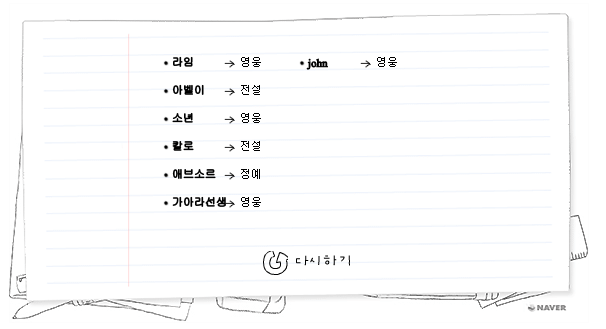 • 라임 → 영웅 • john → 영웅
• 아벨이 → 전설
• 소년 → 영웅
• 칼로 → 전설
• 애브소르 → 정예
• 가아라선생 → 영웅
다시하기
NAVER